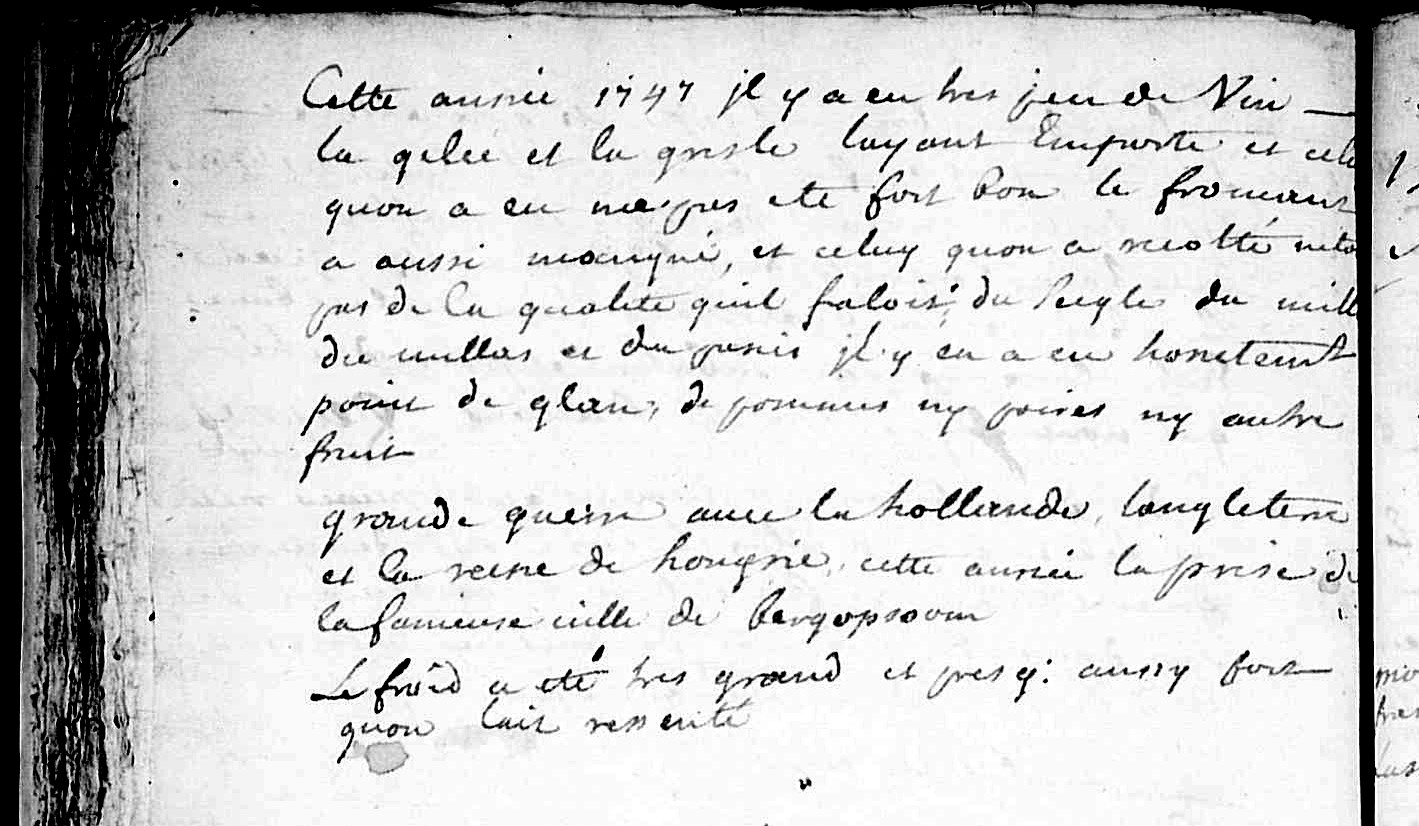 Cette année 1747 jl y a eu tres peu de Vin —
la gelée et la gresle layant Emporté et cely
quon a eu na pas ete fort bon le fromant
a aussi manqué, et celuy quon a recolté neto
pas de la qualité quil faloit; du seigle du mill
du millas et du panis jl y en a eu honetemt
point de glan, de pommes ny poires ny autre
fruit
grande guerre avec la hollande, langleterre
et la reine de hongrie, cette année la prise de
la fameuse ville de Bergopsoom
Le froid a eté tres grand et presq: aussy fort
quon lait ressenté